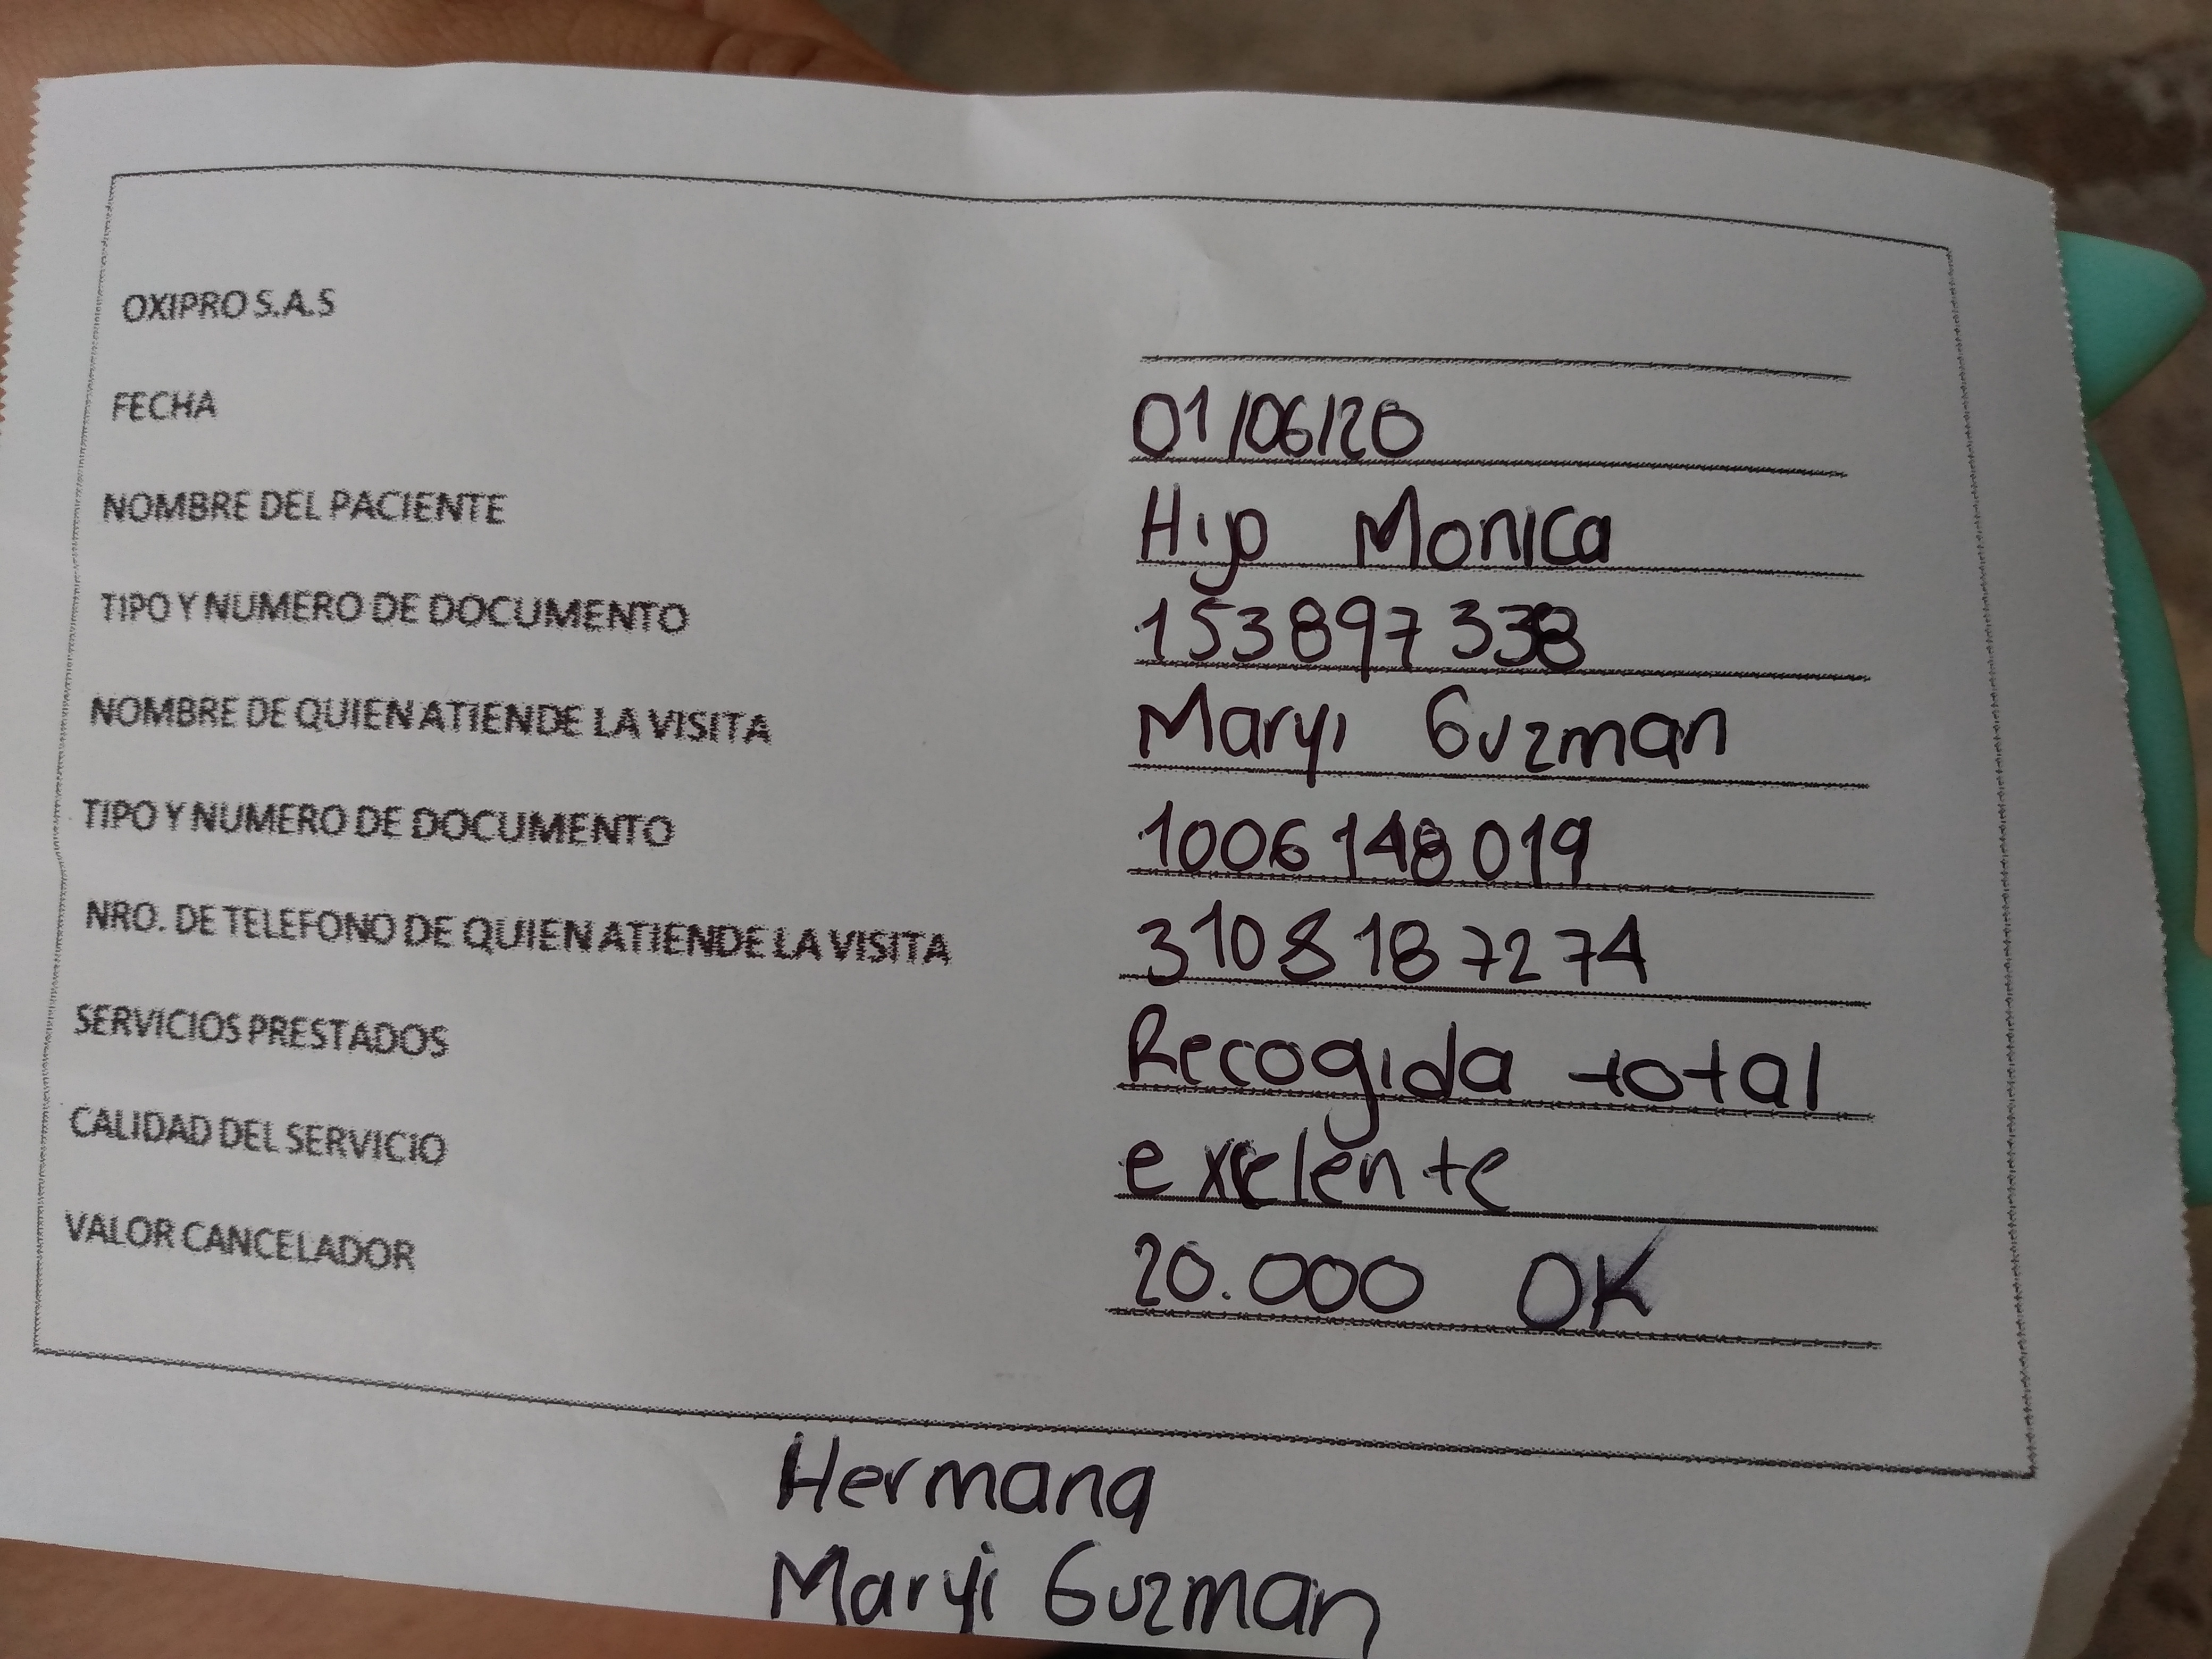 OXIPRO S.A.S
FECHA 01/06/20
NOMBRE DEL PACIENTE Hijo Monica
TIPO Y NUMERO DE DOCUMENTO 153897338
NOMBRE DE QUIEN ATIENDE LA VISITA Maryi Guzman
TIPO Y NUMERO DE DOCUMENTO 1006148019
NRO. DE TELEFONO DE QUIEN ATIENDE LA VISITA 3108187274
SERVICIOS PRESTADOS Recogida total
CALIDAD DEL SERVICIO exelente
VALOR CANCELADOR 20.000 OK
Hermana
Maryi Guzman